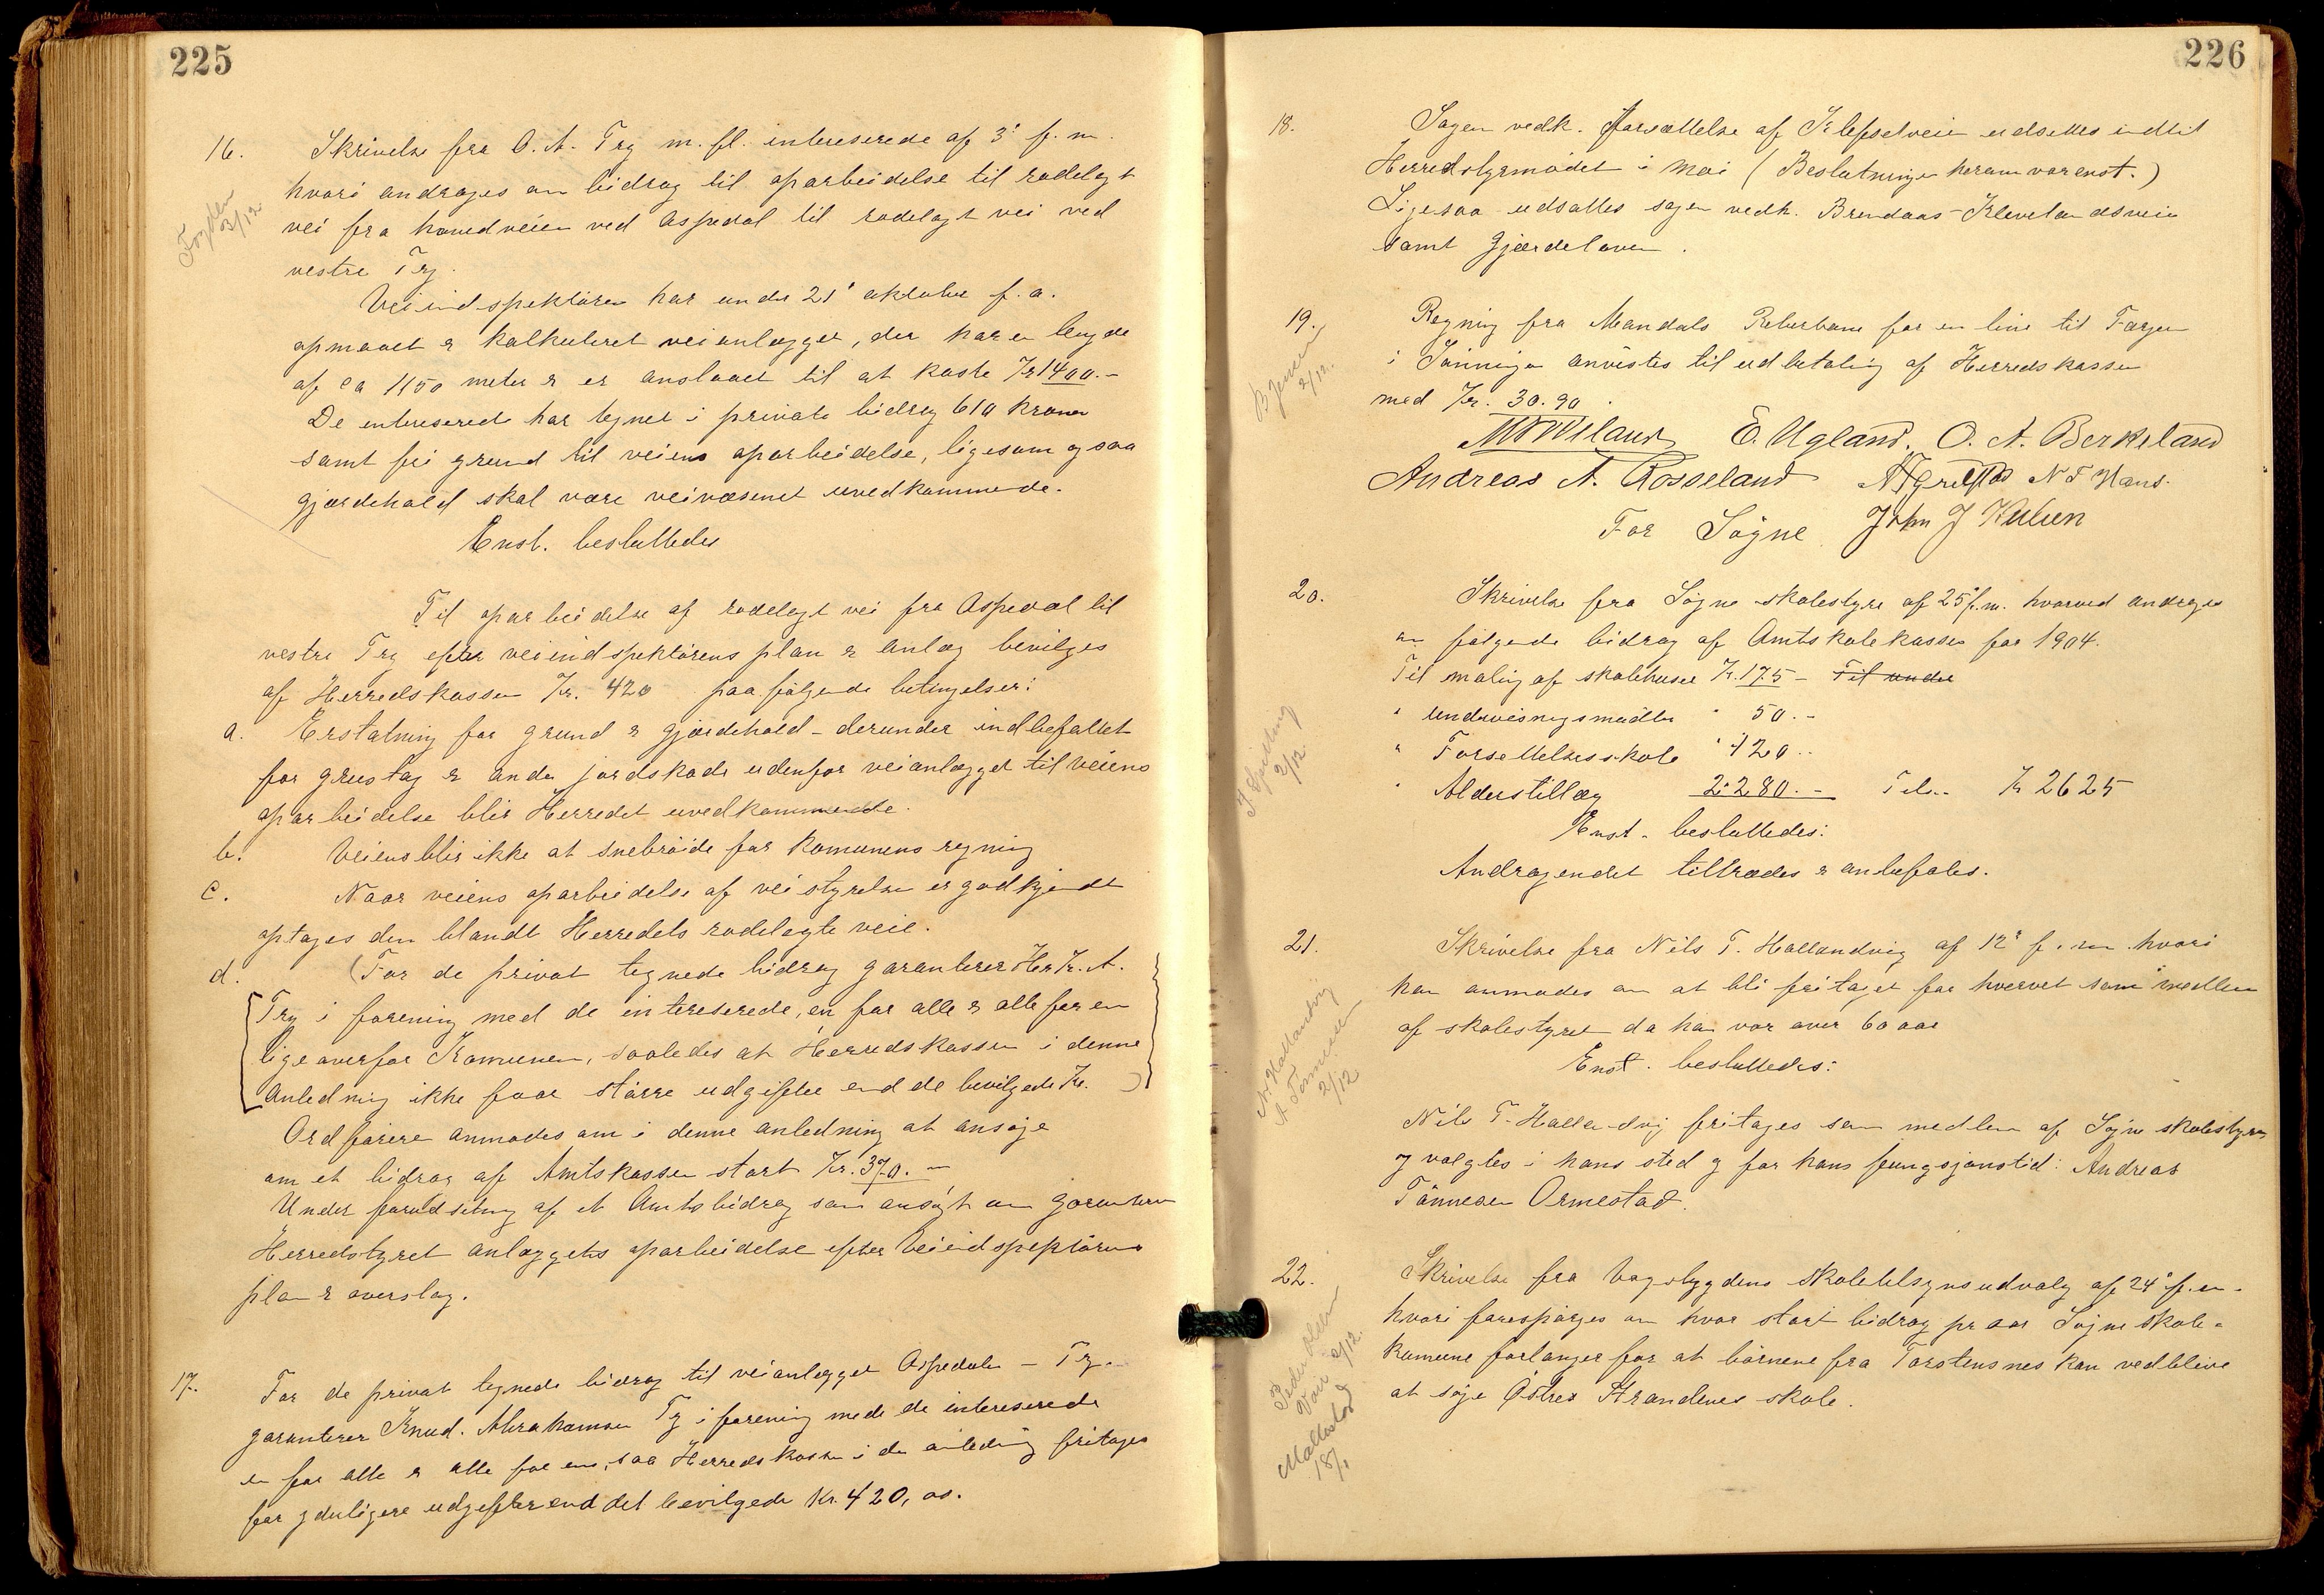 225
16. Skrivelse fra O. A. Try m. fl. intereserede af 3' f. m.
hvori andrages om bidrag til oparbeidelse til rodelagt
vei fra hovedveien ved Aspedal til rodelagt vei ved
vestre Try.
Fogden
3/12
Veiindspektören har under 21' oktober f. a.
opmaalt & kalkuleret veianlægget, der har en lengde
af ca 1150 meter & er anslaaet til at koste Kr 1400.-
De intereserede har tegnet i private bidrag 610 kroner
samt fri grund til veiens oparbeidelse, ligesom ogsaa
gjærdehold skal være veivæsenet uvedkommende.
Enst. besluttedes
Til oparbeidelse af rodelagt vei fra Aspedal til
vestre Try efter veiindspektörens plan & anlæg bevilges
af Herredskassen Kr. 420 paa fölgende betingelser:
a. Erstatning for grund & gjærdehold - derunder indbefattet
for grustag & anden jordskade udenfor veianlægget til veiens
oparbeidelse blir Herredet uvedkommende.
b. Veiens blir ikke at snebröide for Komunens regning
c. Naar veiens oparbeidelse af veistyrelsen er godkjendt
optages den blandt Herredets rodelagte veie.
d. (For de privat tegnede bidrag garanterer Hr Kr. A.
Try i forening med de intereserede, en for alle & alle for en
ligeoverfor Komunen, saaledes at Herredskassen i denne
Anledning ikke faar större udgifter end de bevilgede Kr. )
Ordförere anmodes om i denne anledning at ansöge
om et bidrag af Amtskassen stort Kr. 370. -
Under forudsetning af et Amtsbidrag som ansögt om garanterer
Herredstyret anlæggets oparbeidelse efter Veiindspektörens
plan & overslag.
17. For de privat tegnede bidrag til veianlægget Aspedalen - Try.
garanterer Knud. Abrahamsen Try i forening mede de intereserede
en for alle & alle for en, saa Herredskassen i den anledning fritages
for yderligere udgefter end det bevilgede Kr. 420, oo.
226
18. Sagen vedk. forsættelse af Klepselveien udsettes indtil
Herredstyrmödet i Mai (Beslutningen herom var enst.)
Ligesaa udsattes sagen vedk. Brendaas-Klevelandsveien
samt Gjærdeloven.
19. Regning fra Mandals Reberbane for en line til Færgen
i Tönningen anvistes til udbetaling af Herredskassen
med Kr. 30.90.
B Jensen
2/12.
E. Ugland. O. A. Berkeland
Andreas A. Rosseland N T Hans.
For Sögne John J
20. Skrivelse fra Sögne skolestyre af 25' f. m. hvorved andrages
om fölgende bidrag af Amtskolekassen for 1904.
Til maling af skolehuset Kr. 175 - Til under
" Undervisningsmidler " 50.-
" Forsettelsesskole " 120..
" Alderstillæg 2280.- Tils.. Kr 2625
2/12
Enst. besluttedes:
Andragendet tiltrædes & anbefales.
21. Skrivelse fra Nils T. Hallandvig af 12' f. m. hvori
han anmodes om at bli fritaget for hvervet som medlem
af skolestyret da han var over 60 aar
N. Hallandvig
A Tönnesen
2/12
Enst. besluttedes:
Nils T. Hallandvig fritages som medlem af Sögne skolestyre
og valgtes i hans sted og for hans fungsjonstid: Andreas
Tönnesen Ormestad.
22. Skrivelse fra Vagsbygdens skoletilsynsudvalg af 24' f. m.
hvori forespörges om hvor stort bidrag pr aar Sögne skole-
komune forlanger for at börnene fra Torstensnes kan vedblive
at söge Östre Strandenes skole.
2/12.
18/1